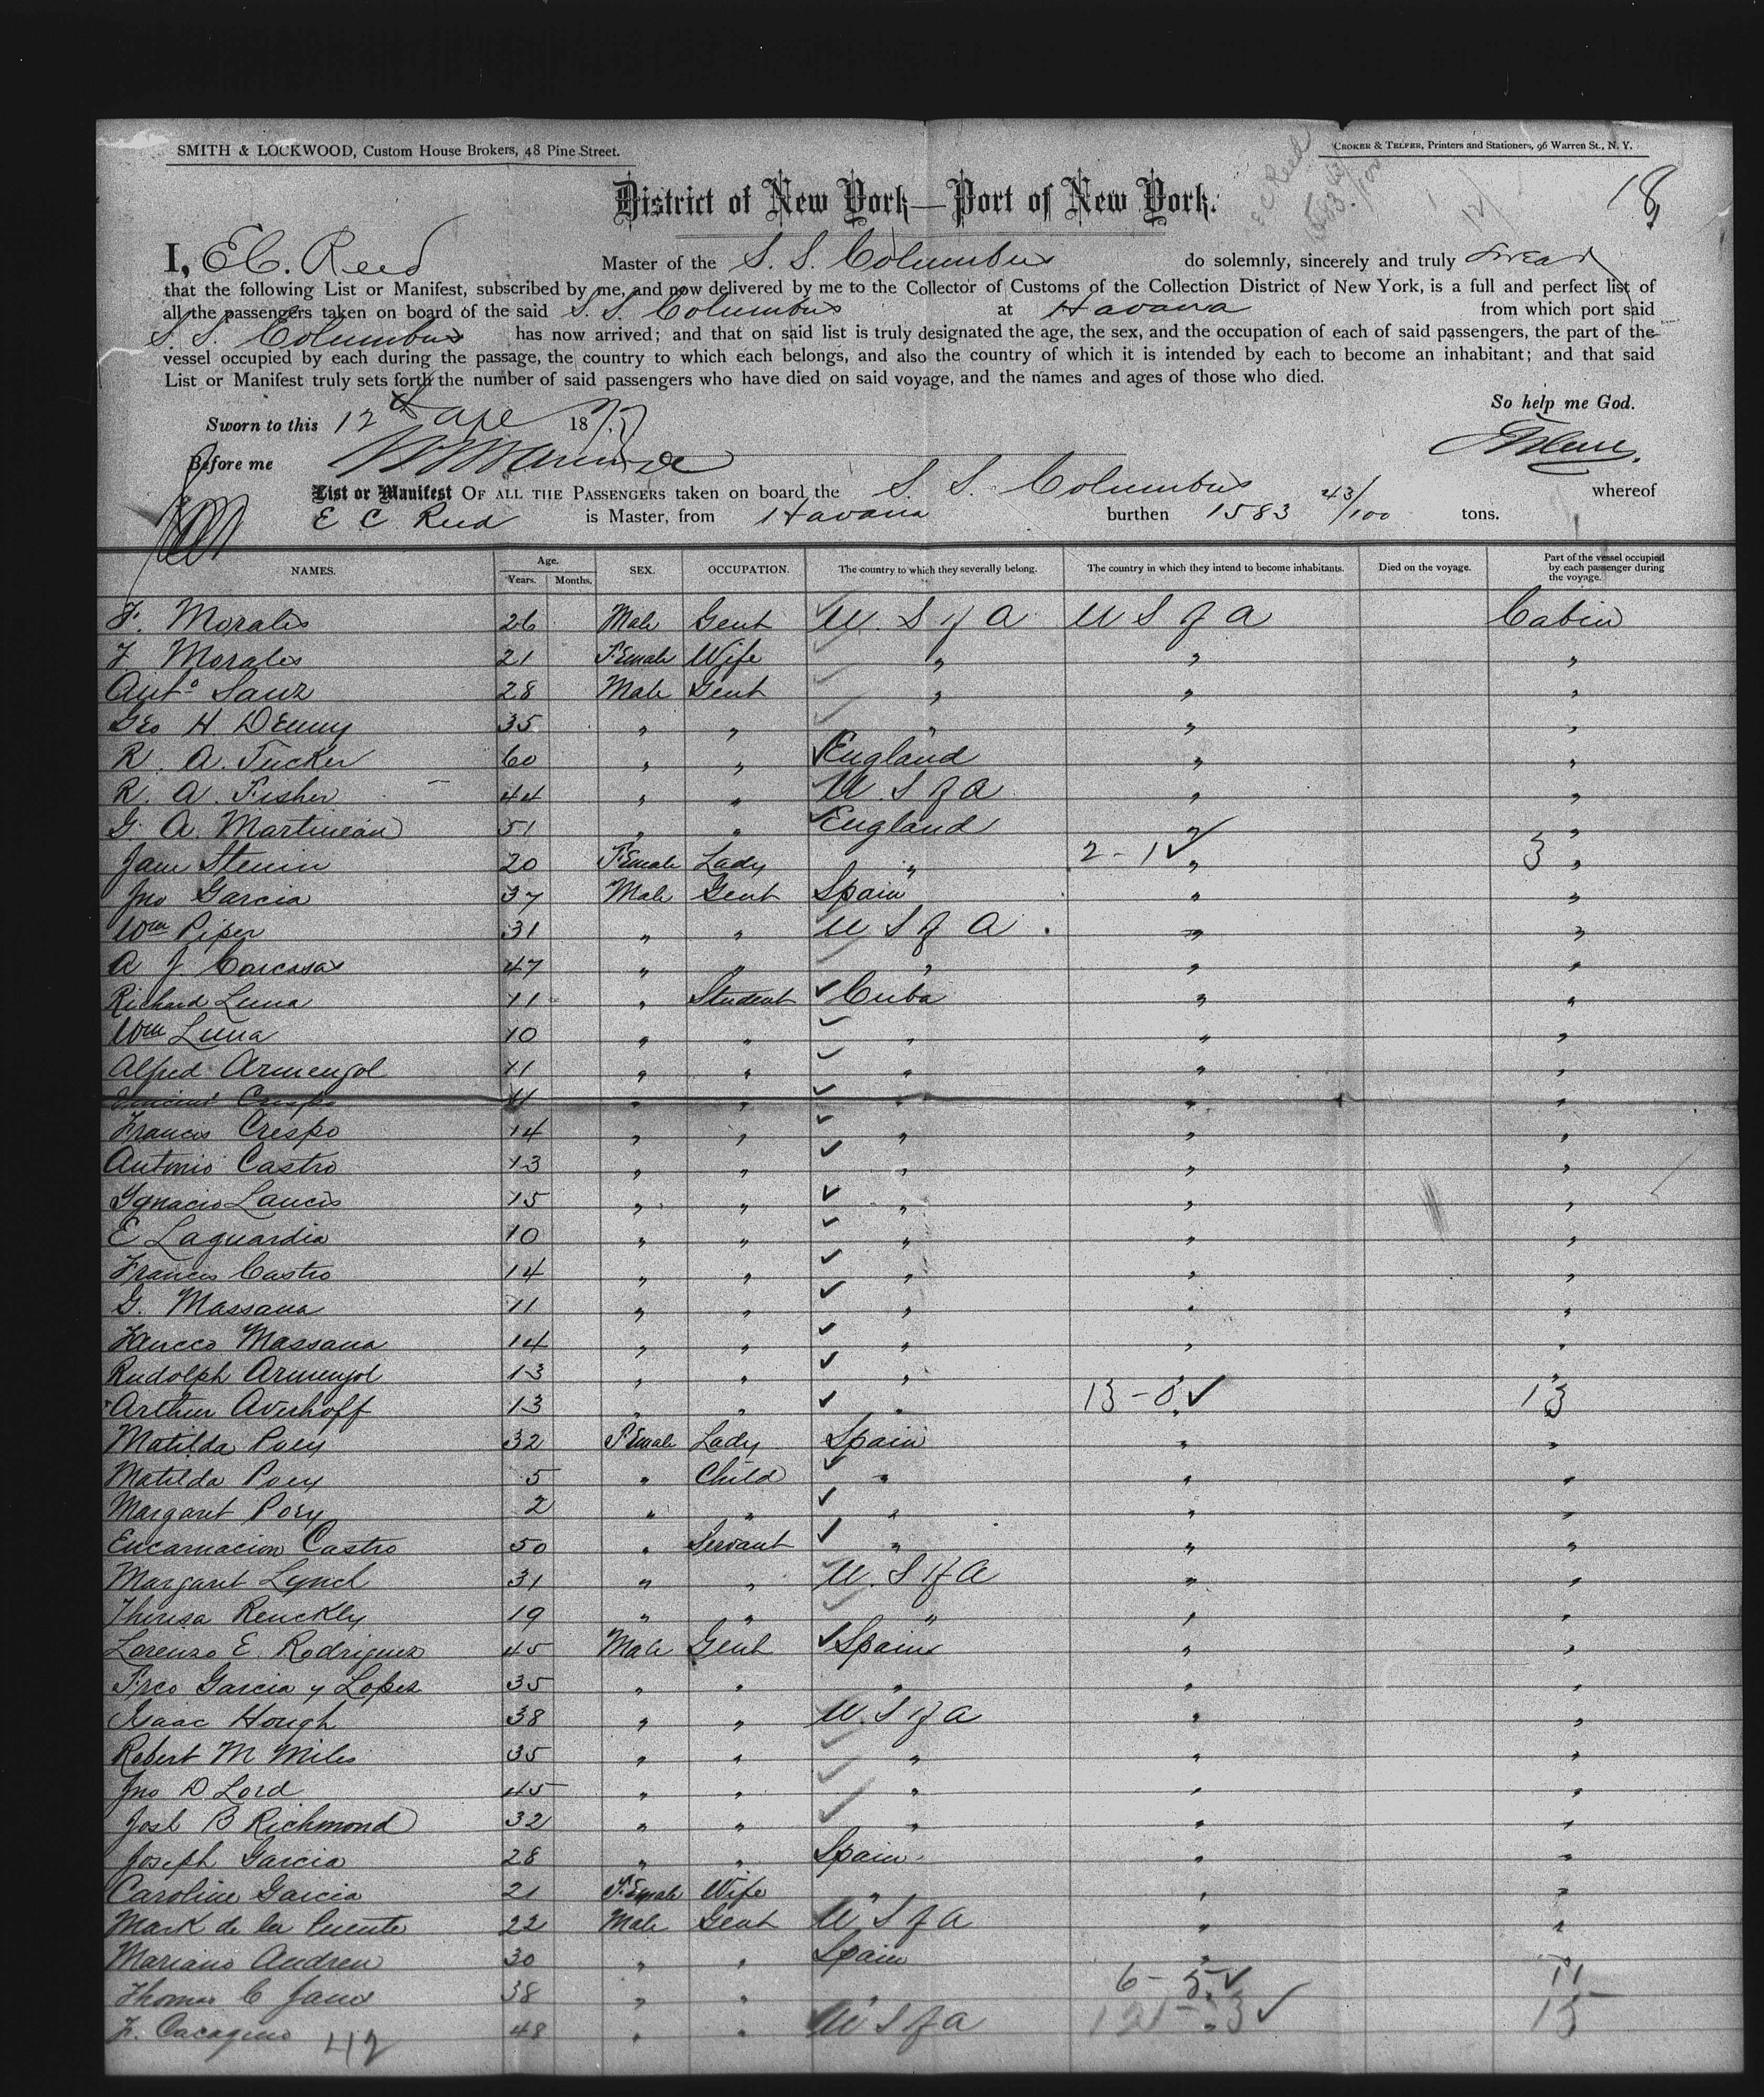 SMITH & LOCKWOOD, Custom House Brokers, 48 Pine Street.
CROKER & TELFER, Printers and Stationers, 96 Warren St., N. Y.
18
District of New York—Port of New York.
I, E C. Reed Master of the S. S. Columbus do solemnly, sincerely and truly swear
that the following List or Manifest, subscribed by me, and now delivered by me to the Collector of Customs of the Collection District of New York, is a full and perfect list of
all the passengers taken on board of the said S. S. Columbus at Havana from which port said
S. S. Columbus has now arrived; and that on said list is truly designated the age, the sex, and the occupation of each of said passengers, the part of the
vessel occupied by each during the passage, the country to which each belongs, and also the country of which it is intended by each to become an inhabitant; and that said
List or Manifest truly sets forth the number of said passengers who have died on said voyage, and the names and ages of those who died.
So help me God.
Sworn to this 12th 1877
Before me
List or Manifest OF ALL THE PASSENGERS taken on board the S. S. Columbus whereof
E C Reed is Master, from Havana burthen 1583 43/100 tons.
NAMES. Age. Years. Months. SEX. OCCUPATION. The country to which they severally belong. The country in which they intend to become inhabitants. Died on the voyage. Part of the vessel occupied by each passenger during the voyage.
F. Morales 26 Male Gent U S of A U S of A Cabin
F. Morales 21 Female Wife " " "
Anto Sanz 28 Male Gent " " "
Geo H. Denny 35 " " " " "
R. A. Tucker 60 " " England " "
R. A. Fisher 44 " " U. S of A " "
G. A. Martineau 51 " " England " "
Jane 20 Female Lady " 2-1 " 3 "
Jno Garcia 37 Male Gent Spain " "
Wm Piper 31 " " U S of A " "
A J 47 " " " " "
Richard Luna 11 " Student Cuba " "
Wm Luna 10 " " " " "
Alfred Armengol 11 " " " " "
Vincent Crespo 11 " " " " "
Francis Crespo 14 " " " " "
Antonio Castro 13 " " " " "
Ygnacio Lancis 15 " " " " "
E Laguardia 10 " " " " "
Francis Castro 14 " " " " "
G. Massana 11 " " " " "
Massana 14 " " " " "
Rudolph Armengol 13 " " " " "
Arthur Averhoff 13 " " " 13-0 " 13 "
Matilda Poey 32 Female Lady Spain " "
Matilda Poey 5 " Child " " "
Margaret Poey 2 " " " " "
Encarnacion Castro 50 " Servant " " "
Margaret Lynch 31 " " U. S of A " "
Theresa Renckley 19 " " " " "
Lorenzo E. Rodriguez 45 Male Gent Spain " "
Frco Garcia y Lopez 35 " " " " "
Isaac Hough 38 " " U. S of A " "
Robert M Miles 35 " " " " "
Jno D Lord 45 " " " " "
Josh B Richmond 32 " " " " "
Joseph Garcia 28 " " Spain " "
Caroline Garcia 21 Female Wife " " "
Mark de la Puente 22 Male Gent U S of A " "
Mariano Andreu 30 " " Spain " "
Thomas C 38 " " " 6-5 " 11
F. 48 " " U S of A " 15
42